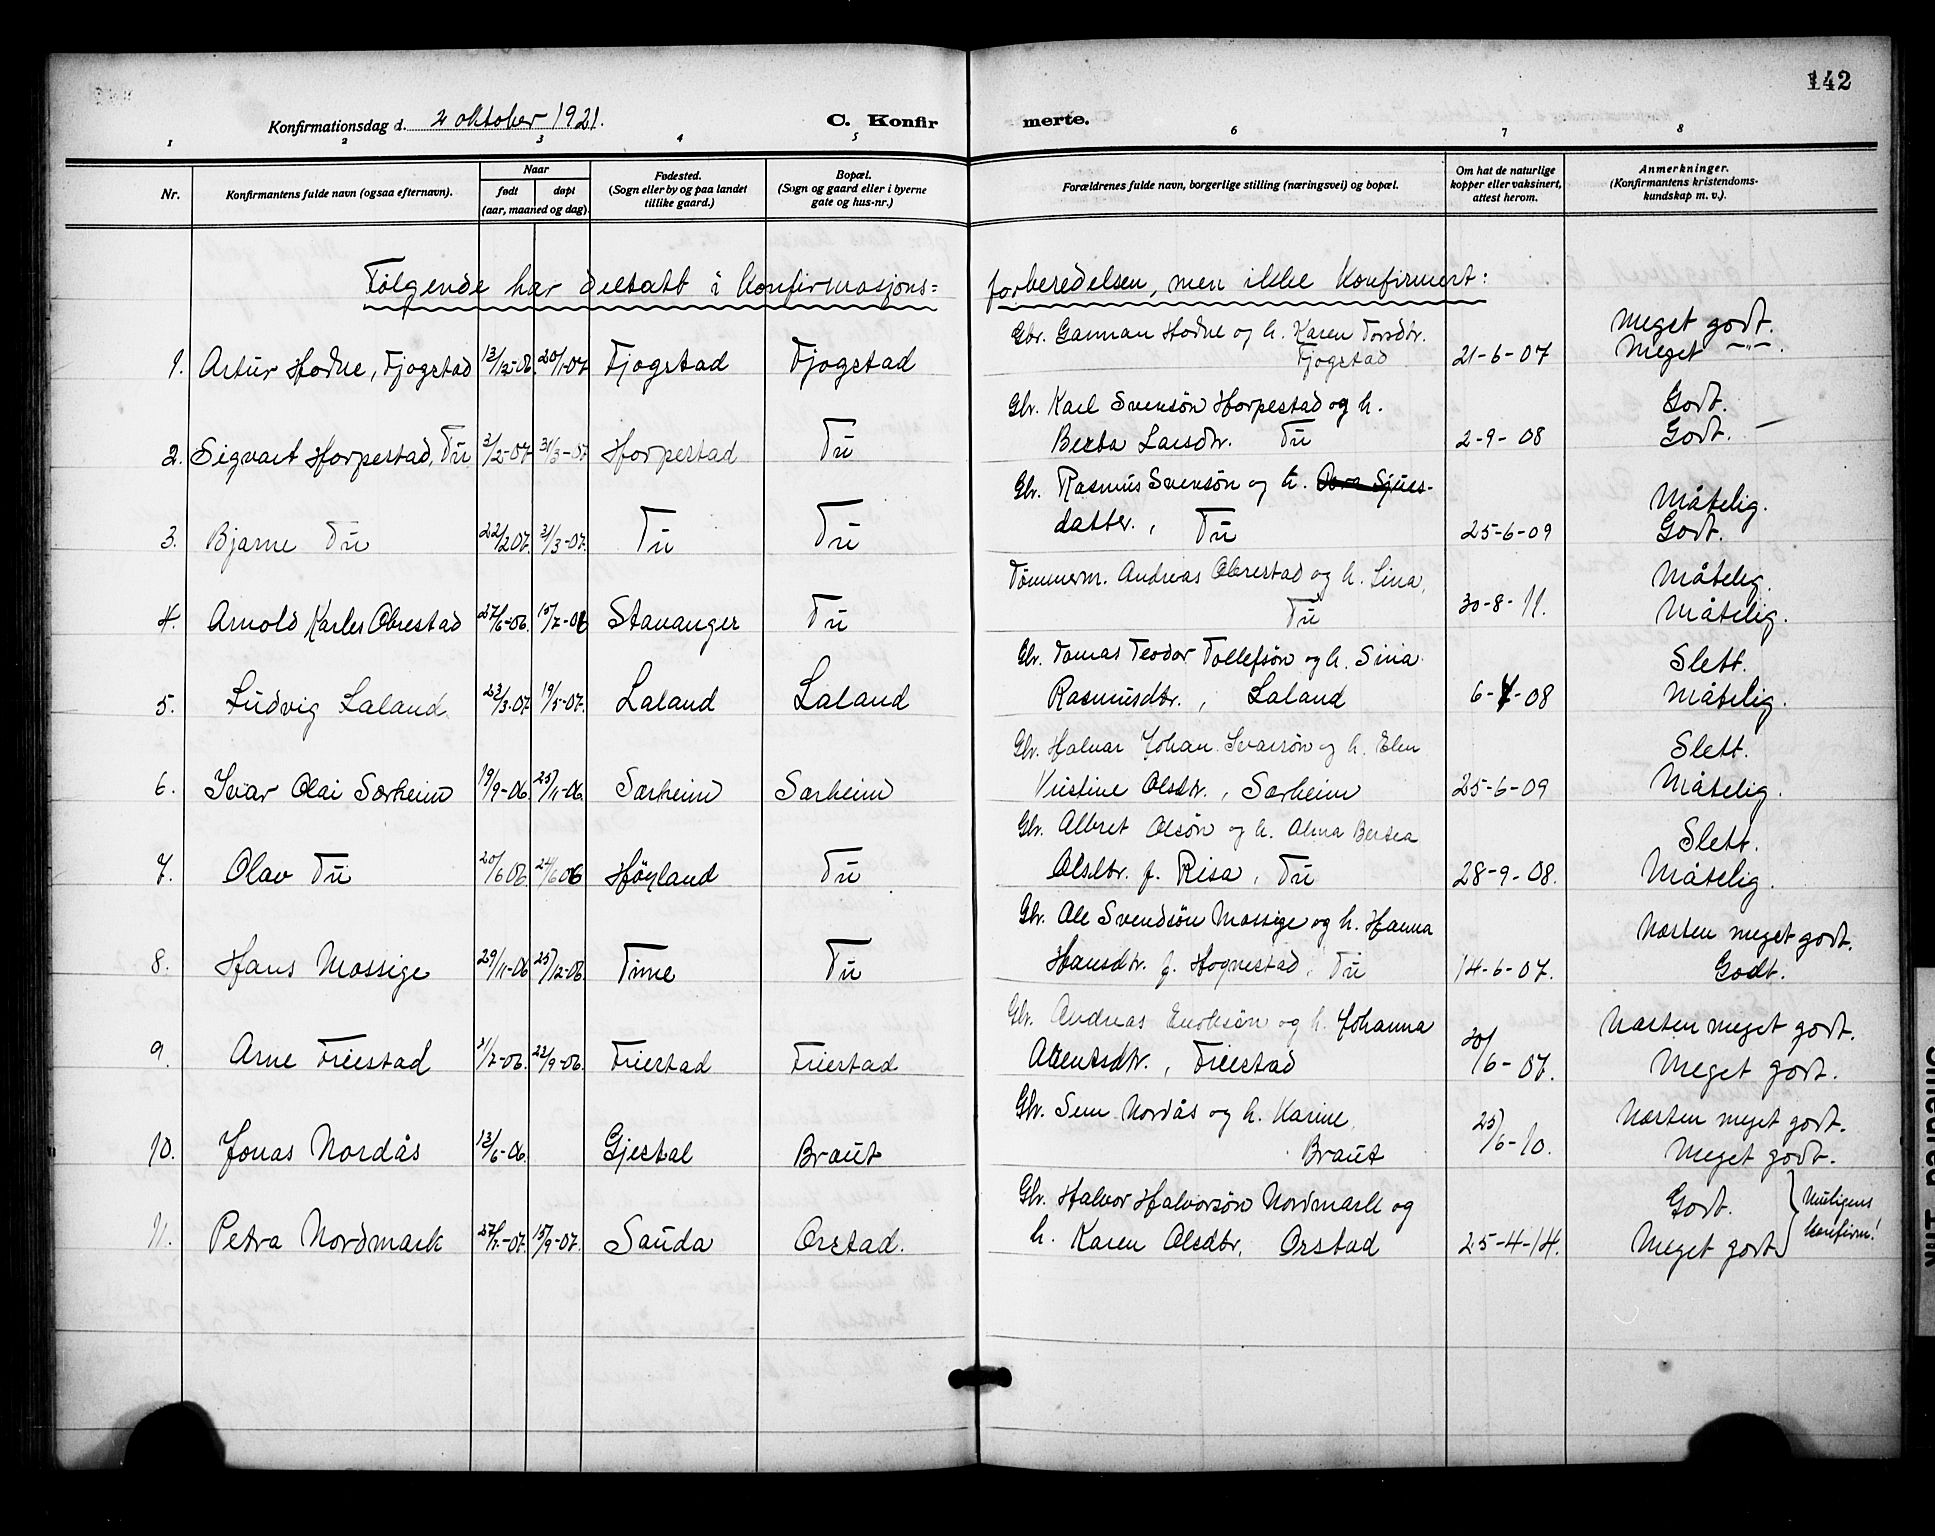 142
Konfirmationsdag d. 2 oktober 1921. C. Konfirmerte.
1 2 3 4 5 6 7 8
Nr.
Konfirmantens fulde navn (ogsaa efternavn).
Naar
født døpt
(aar, maaned og dag).
Fødested.
(Sogn eller by og paa landet
tillike gaard.)
Bopæl.
(Sogn og gaard eller i byerne
gate og hus-nr.)
Forældrenes fulde navn, borgerlige stilling (næringsvei) og bopæl.
Om hat de naturlige
kopper eller vaksinert,
attest herom.
Anmerkninger.
(Konfirmantens kristendoms-
kundskap m. v.).
Følgende har deltatt i konfirmasjons= forberedelsen, men ikke konfirmert:
Gbr. Gunnan Hodne og h. Karen Tordtr. Meget godt.
1. Artur Hodne, Fjogstad 13/12-06. 20/1-07 Fjogstad Fjogstad Fjogstad 21-6-07 Meget —"—.
Gbr. Karl Svensøn Horpestad og h. Godt.
2. Sigvart Horpestad, Tu 3/2-07 31/3-07 Horpestad Tu Berta Larsdtr. Tu 2-9-08 Godt. —
Gbr. Rasmus Svensøn og h. Sjurs- Måtelig.
3. Bjarne Tu 22/2 07. 31/3-07. Tu Tu datter., Tu 25-6-09 Godt.
Tømmerm. Andreas Obrestad og h. Lina, Måtelig.
4. Arnold Karles Obrestad 27/6-06. 15/7-06 Stavanger Tu Tu 30-8-11. Måtelig.
Gbr. Tomas Teodor Tollefsøn og h. Sina Slett.
5. Ludvig Laland 23/3-07. 19/5-07. Laland Laland Rasmusdtr., Laland 6-7-08 Måtelig.
Gbr. Halvar Johan Ivarsøn og h. Elen Slett.
6. Ivar Olai Særheim 19/9-06. 25/11-06. Særheim Særheim Kristine Olsdtr., Særheim 25-6-09 Måtelig.
Gbr. Albret Olsøn og h. Alma Bertea Slett.
7. Olav Tu 20/6 06. 24/6 06 Høyland Tu Olsdtr. f. Risa, Tu 28-9-08. Måtelig.
Gbr. Ole Svendsøn Mossige og h. Hanna Næsten meget godt.
8. Hans Mossige 29/11-06 25/12-06. Time Tu Hansdtr. f. Hognestad, Tu 14-6-07. Godt.
Gbr. Andreas Enoksøn og h. Johanna Næsten meget godt.
9. Arne Friestad /7-06. 23/9-06. Friestad Friestad Friestad 30/6-07. Meget godt.
Gbr. Sem Nordås og h. Karine Næsten meget godt.
10. Jonas Nordås 13/6-06. Gjestal Braut Braut 25/6-10. Meget godt.
Gbr. Halvor Halvorsøn Nordmark og Godt. Muligens
11. Petra Nordmark 27/7-07. 15/9-07. Sauda Orstad. h. Karen Olsdtr, Orstad 25-4-14. Meget godt konfirm!
Standard Link